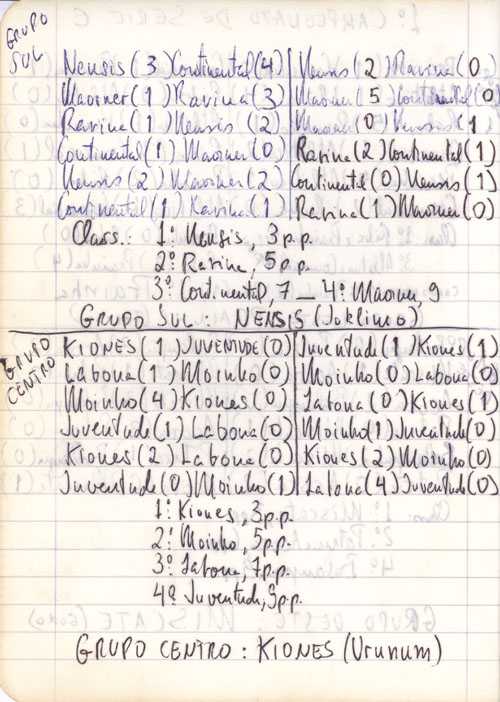 GRUPO SUL
Nensis (3) Continental (4) | Nensis (2) Ravina (0)
Maorner (1) Ravina (3) | Maorner (5) Continental (0)
Ravina (1) Nensis (2) | Maorner (0) Nensis (1)
Continental (1) Maorner (0) | Ravina (2) Continental (1)
Nensis (2) Maorner (2) | Continental (0) Nensis (1)
Continental (1) Ravina (1) | Ravina (1) Maorner (0)
Class.: 1º Nensis, 3 p.p.
2º Ravina, 5 p.p.
3º Continental, 7 — 4º Maorner, 9
GRUPO SUL: NENSIS (Joklimo)
GRUPO CENTRO
KIONES (1) JUVENTUDE (0) | Juventude (1) Kiones (1)
Labona (1) Moinho (0) | Moinho (0) Labona (0)
Moinho (4) Kiones (0) | Labona (0) Kiones (1)
Juventude (1) Labona (0) | Moinho (1) Juventude (0)
Kiones (2) Labona (0) | Kiones (2) Moinho (0)
Juventude (0) Moinho (1) | Labona (4) Juventude (0)
1º Kiones, 3 p.p.
2º Moinho, 5 p.p.
3º Labona, 7 p.p.
4º Juventude, 9 p.p.
GRUPO CENTRO: KIONES (Urunum)